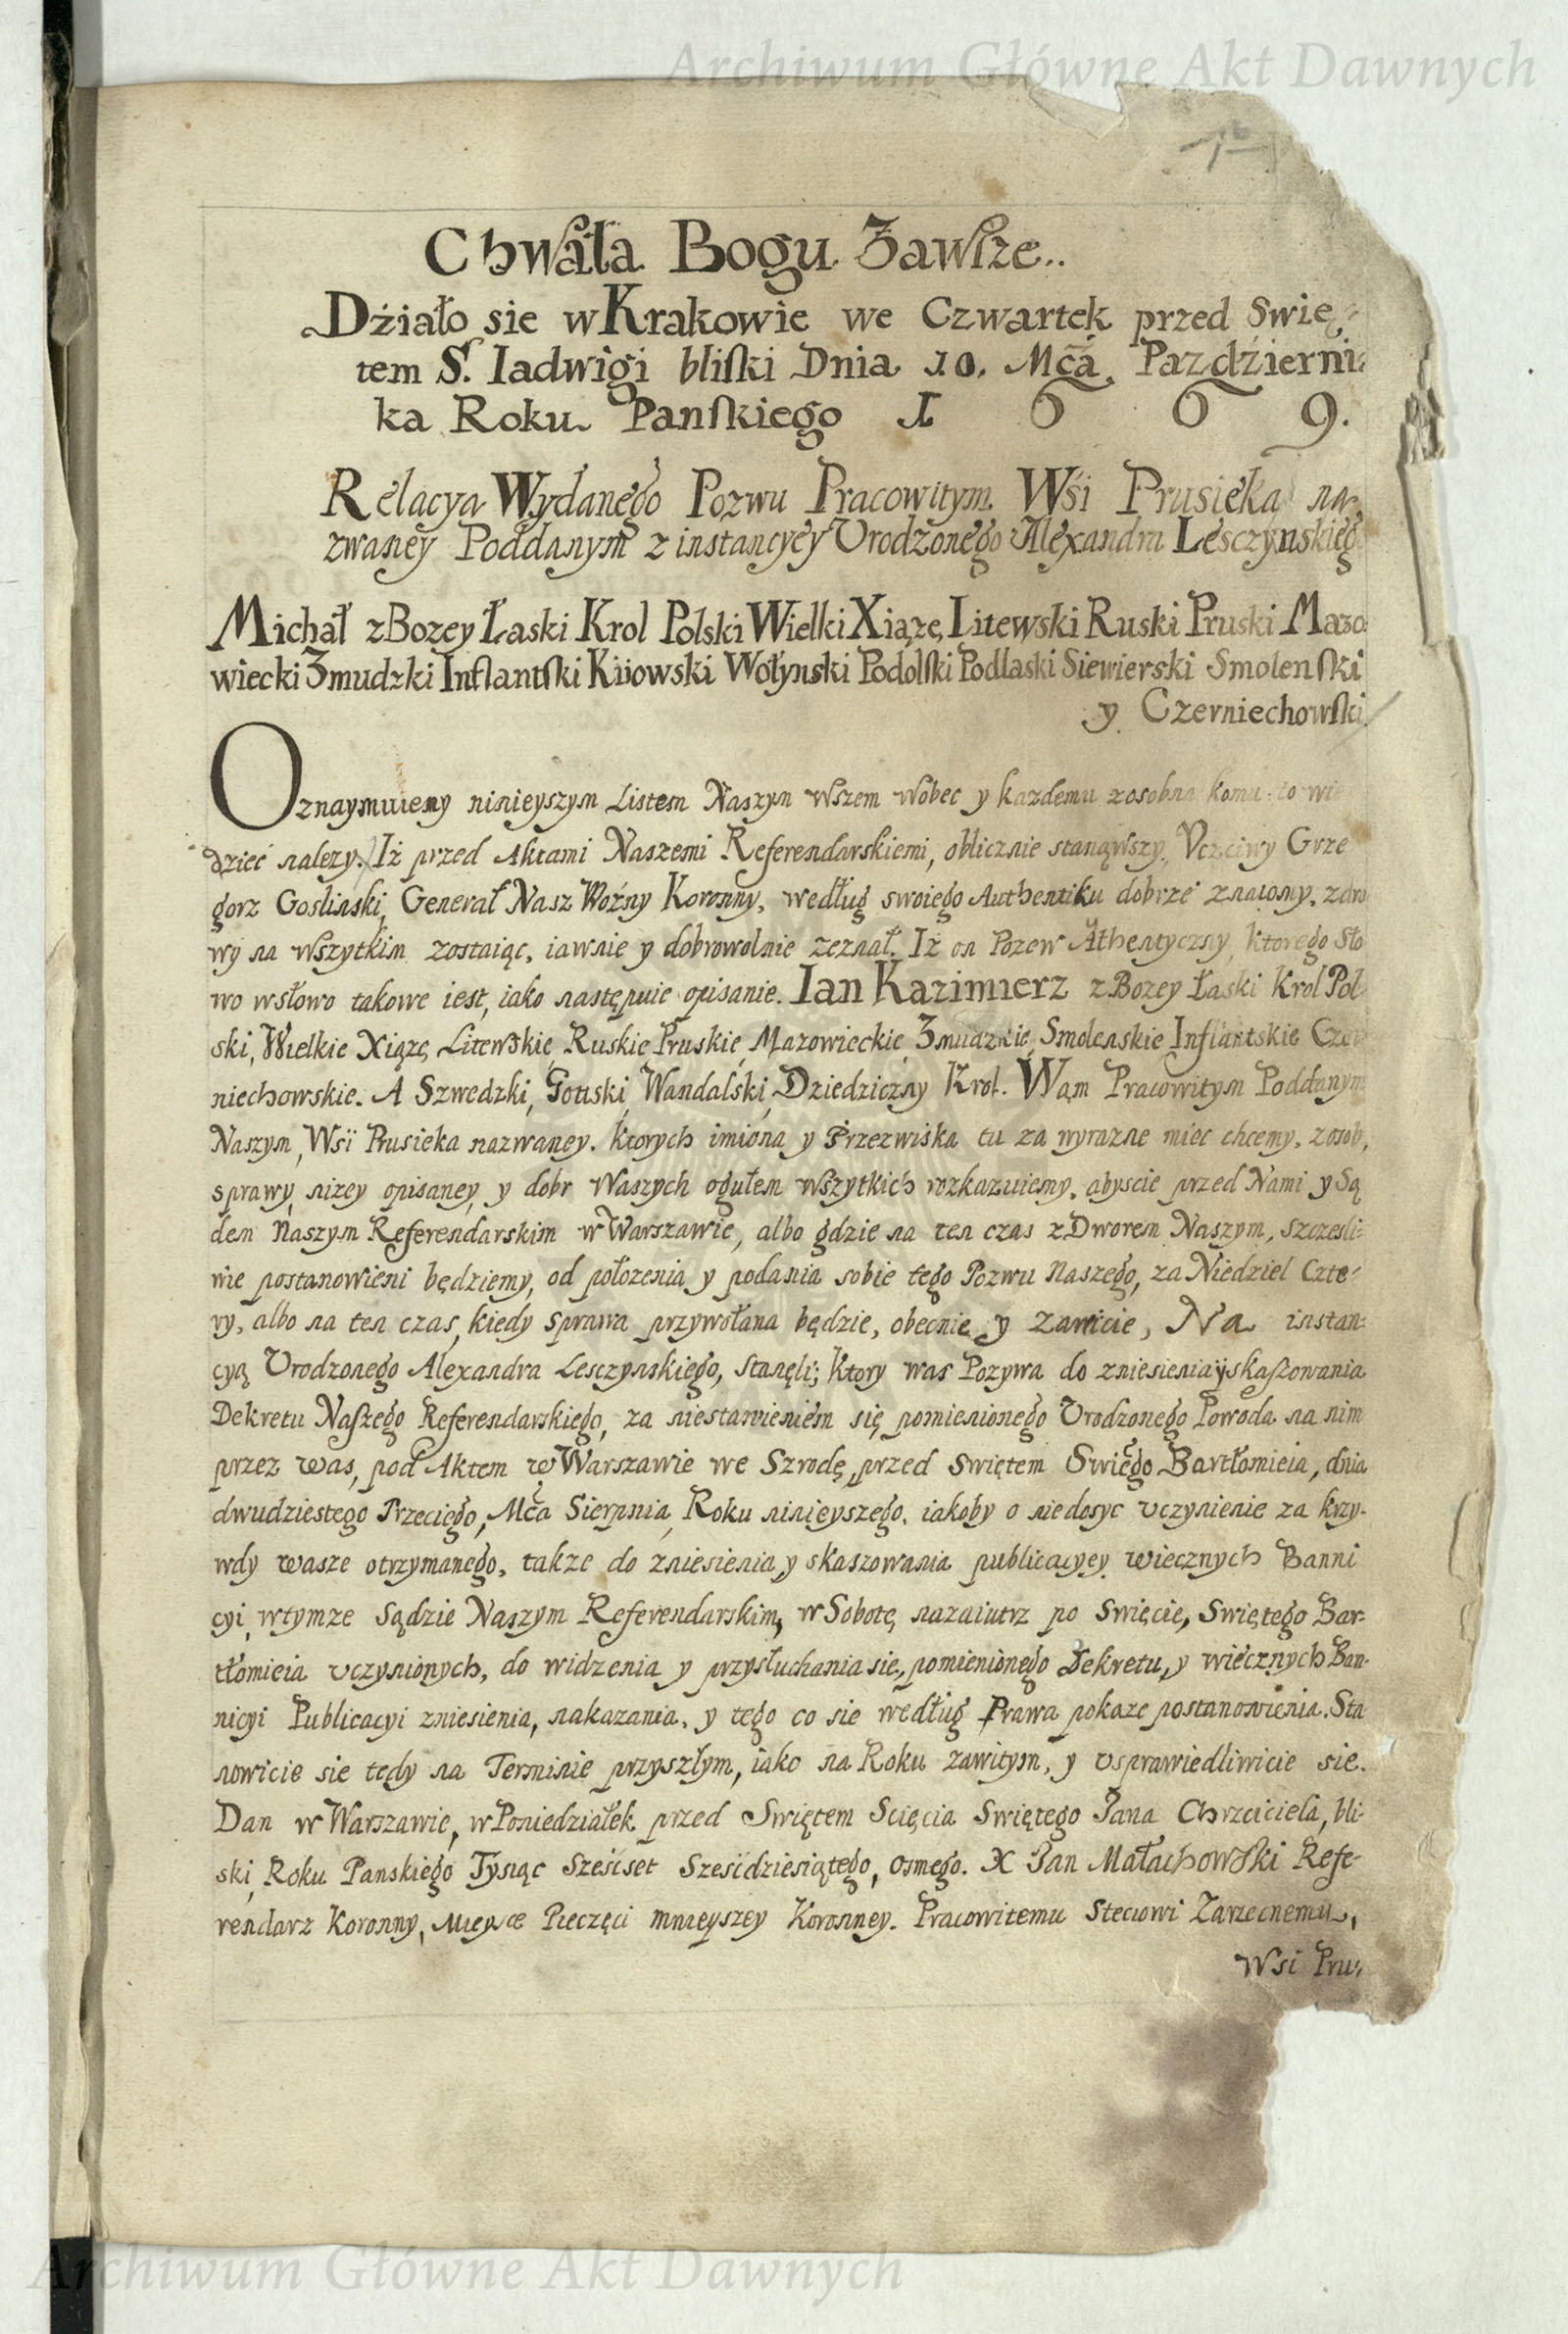 Archiwum Główne Akt Dawnych
Chwała Bogu Zawsze..
Działo sie w Krakowie we Czwartek przed Swię-
tem S. Iadwigi bliski Dnia 10. Mcá Pazdzierni:
ka Roku Panskiego 1 6 6 9.
Relacya Wydanego Pozwu Pracowitym Wśi Prusieka na,
zwaney Poddanym z instancyey Vrodzonego Alexandra Lesczynskieg
Michał z Bozey Łaski Krol Polski Wielki Xiąze, Litewski Ruski Pruski Mazo
wiecki Zmudzki Inflantski Kiiowski Wołynski Podolski Podlaski Siewierski Smolenski
y Czerniechowski
Oznaymuiemy ninieyszym Listem Naszym wszem wobec y kazdemu zosobna komu to wie
dzieć nalezy. Iż przed Aktami Naszemi Referendarskiemi, oblicznie stanąwszy Vczciwy Grze
gorz Gosliński, Generał Nasz Woźny Koronny, według swoiego Authentiku dobrze znaiomy, zdro
wy na wszytkim zostaiąc, iawnie y dobrowolnie zeznał. Iż on Pozew Athentyczny, ktorego sło
wo wsłowo takowe iest, iako następuie opisanie. Ian Kazimierz z Bozey Łaski Krol Pol
ski, Wielkie Xiąze, Litewskie, Ruskie, Pruskie, Mazowieckie, Zmudzkie, Smolenskie Inflantskie Czer
niechowskie. A Szwedzki, Gottski, Wandalski, Dziedziczny Krol. Wam Pracowitym Poddanym
Naszym, Wsi Prusieka nazwaney. ktorych imiona y Przezwiska tu za wyrazne miec chcemy, zosob,
sprawy, nizey opisaney, y dobr Waszych ogułem wszytkich rozkazuiemy, abyscie przed Nami y Są
dem Naszym Referendarskim w Warszawie, albo gdzie na ten czas z Dworem Naszym, szczesli:
wie postanowieni będziemy, od połozenia y podania sobie tego Pozwu Naszego, za Niedziel Czte-
ry, albo na ten czas, kiedy sprawa przywołana będzie, obecnie y zawicie, Na instan:
cyą Vrodzonego Alexandra Lesczynskiego, stanęli; ktory was Pozywa do zniesienia y skaszowania
Dekretu Naszego Referendarskiego, za niestawieniem się pomienionego Vrodzonego Powoda na nim
przez was, pod Aktem w Warszawie we Szrodę, przed Swiętem Swiego Bartłomieia, dnia
dwudziestego Trzeciego, Mca Sierpnia, Roku ninieyszego. iakoby o niedosyc vczynienie za krzy-
wdy wasze otrzymanego, takze do zniesienia y skaszowania publicacyey wiecznych Banni
cyi, wtymze Sądzie Naszym Referendarskim, w Sobotę nazaiutrz po Swięcie, Swiętego Bar-
tłomieia vczynionych, do widzenia y przysłuchania sie, pomienionego Dekretu, y wiecznych Ban-
nicyi Publicacyi zniesienia, nakazania, y tego co sie według Prawa pokaze postanowienia. Sta
nowicie sie tedy na Terminie przyszłym, iako na Roku zawitym, y vsprawiedliwicie sie.
Dan w Warszawie, w Poniedziałek przed Swiętem Scięcia Swiętego Jana Chrzciciela, bli-
ski, Roku Panskiego Tysiąc Szesset Szesdziesiątego, Osmego. X Jan Małachowski Refe-
rendarz Koronny, Mieysce Pieczęci mnieyszey Koronney. Pracowitemu Steciowi Zarzecnemu,
Wsi Pru:
Archiwum Główne Akt Dawnych